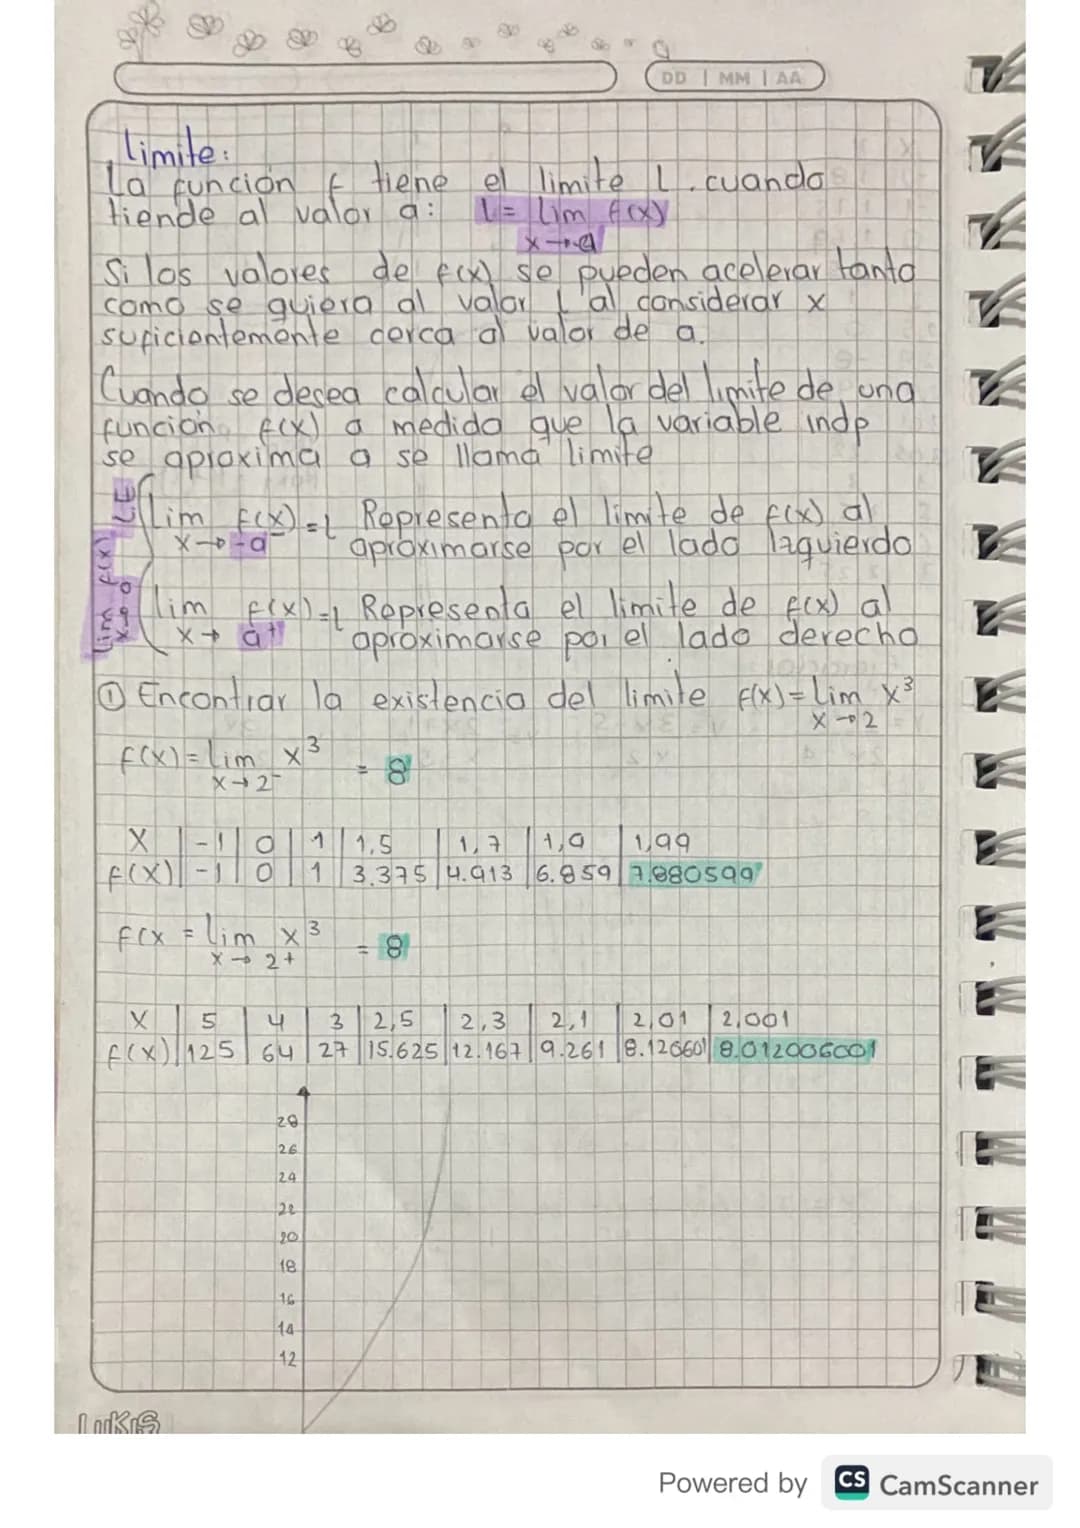 DD | MM | AA
Limite:
La función f tiene el limite L. cuando
tiende al valor a: L = lim f(x)
x→a
Si los valores de f(x) se pueden acelerar tanto
como se quiera al valor L al considerar x
suficientemente cerca al valor de a.
Cuando se desea calcular el valor del limite de una
función f(x) a medida que la variable indp
se aproxima a se llama limite
lim f(x) = L Representa el limite de f(x) al
x→-a⁻ aproximarse por el lado Izquierdo
lim f(x)
x→a
lim f(x) = L Representa el limite de f(x) al
x→a⁺ aproximarse por el lado derecho
① Encontrar la existencia del limite f(x) = lim x³
x→2
f(x) = lim x³ = 8
x→2⁻
X | -1 | 0 | 1 | 1,5 | 1,7 | 1,9 | 1,99
f(x) | -1 | 0 | 1 | 3.375 | 4.913 | 6.859 | 7.880599
f(x = lim x³ = 8
x→2+
X | 5 | 4 | 3 | 2,5 | 2,3 | 2,1 | 2,01 | 2,001
f(x) | 125 | 64 | 27 | 15.625 | 12.167 | 9.261 | 8.120601 | 8.012006001
28
26
24
22
20
18
16
14
12
LUKIS
Powered by CS CamScanner